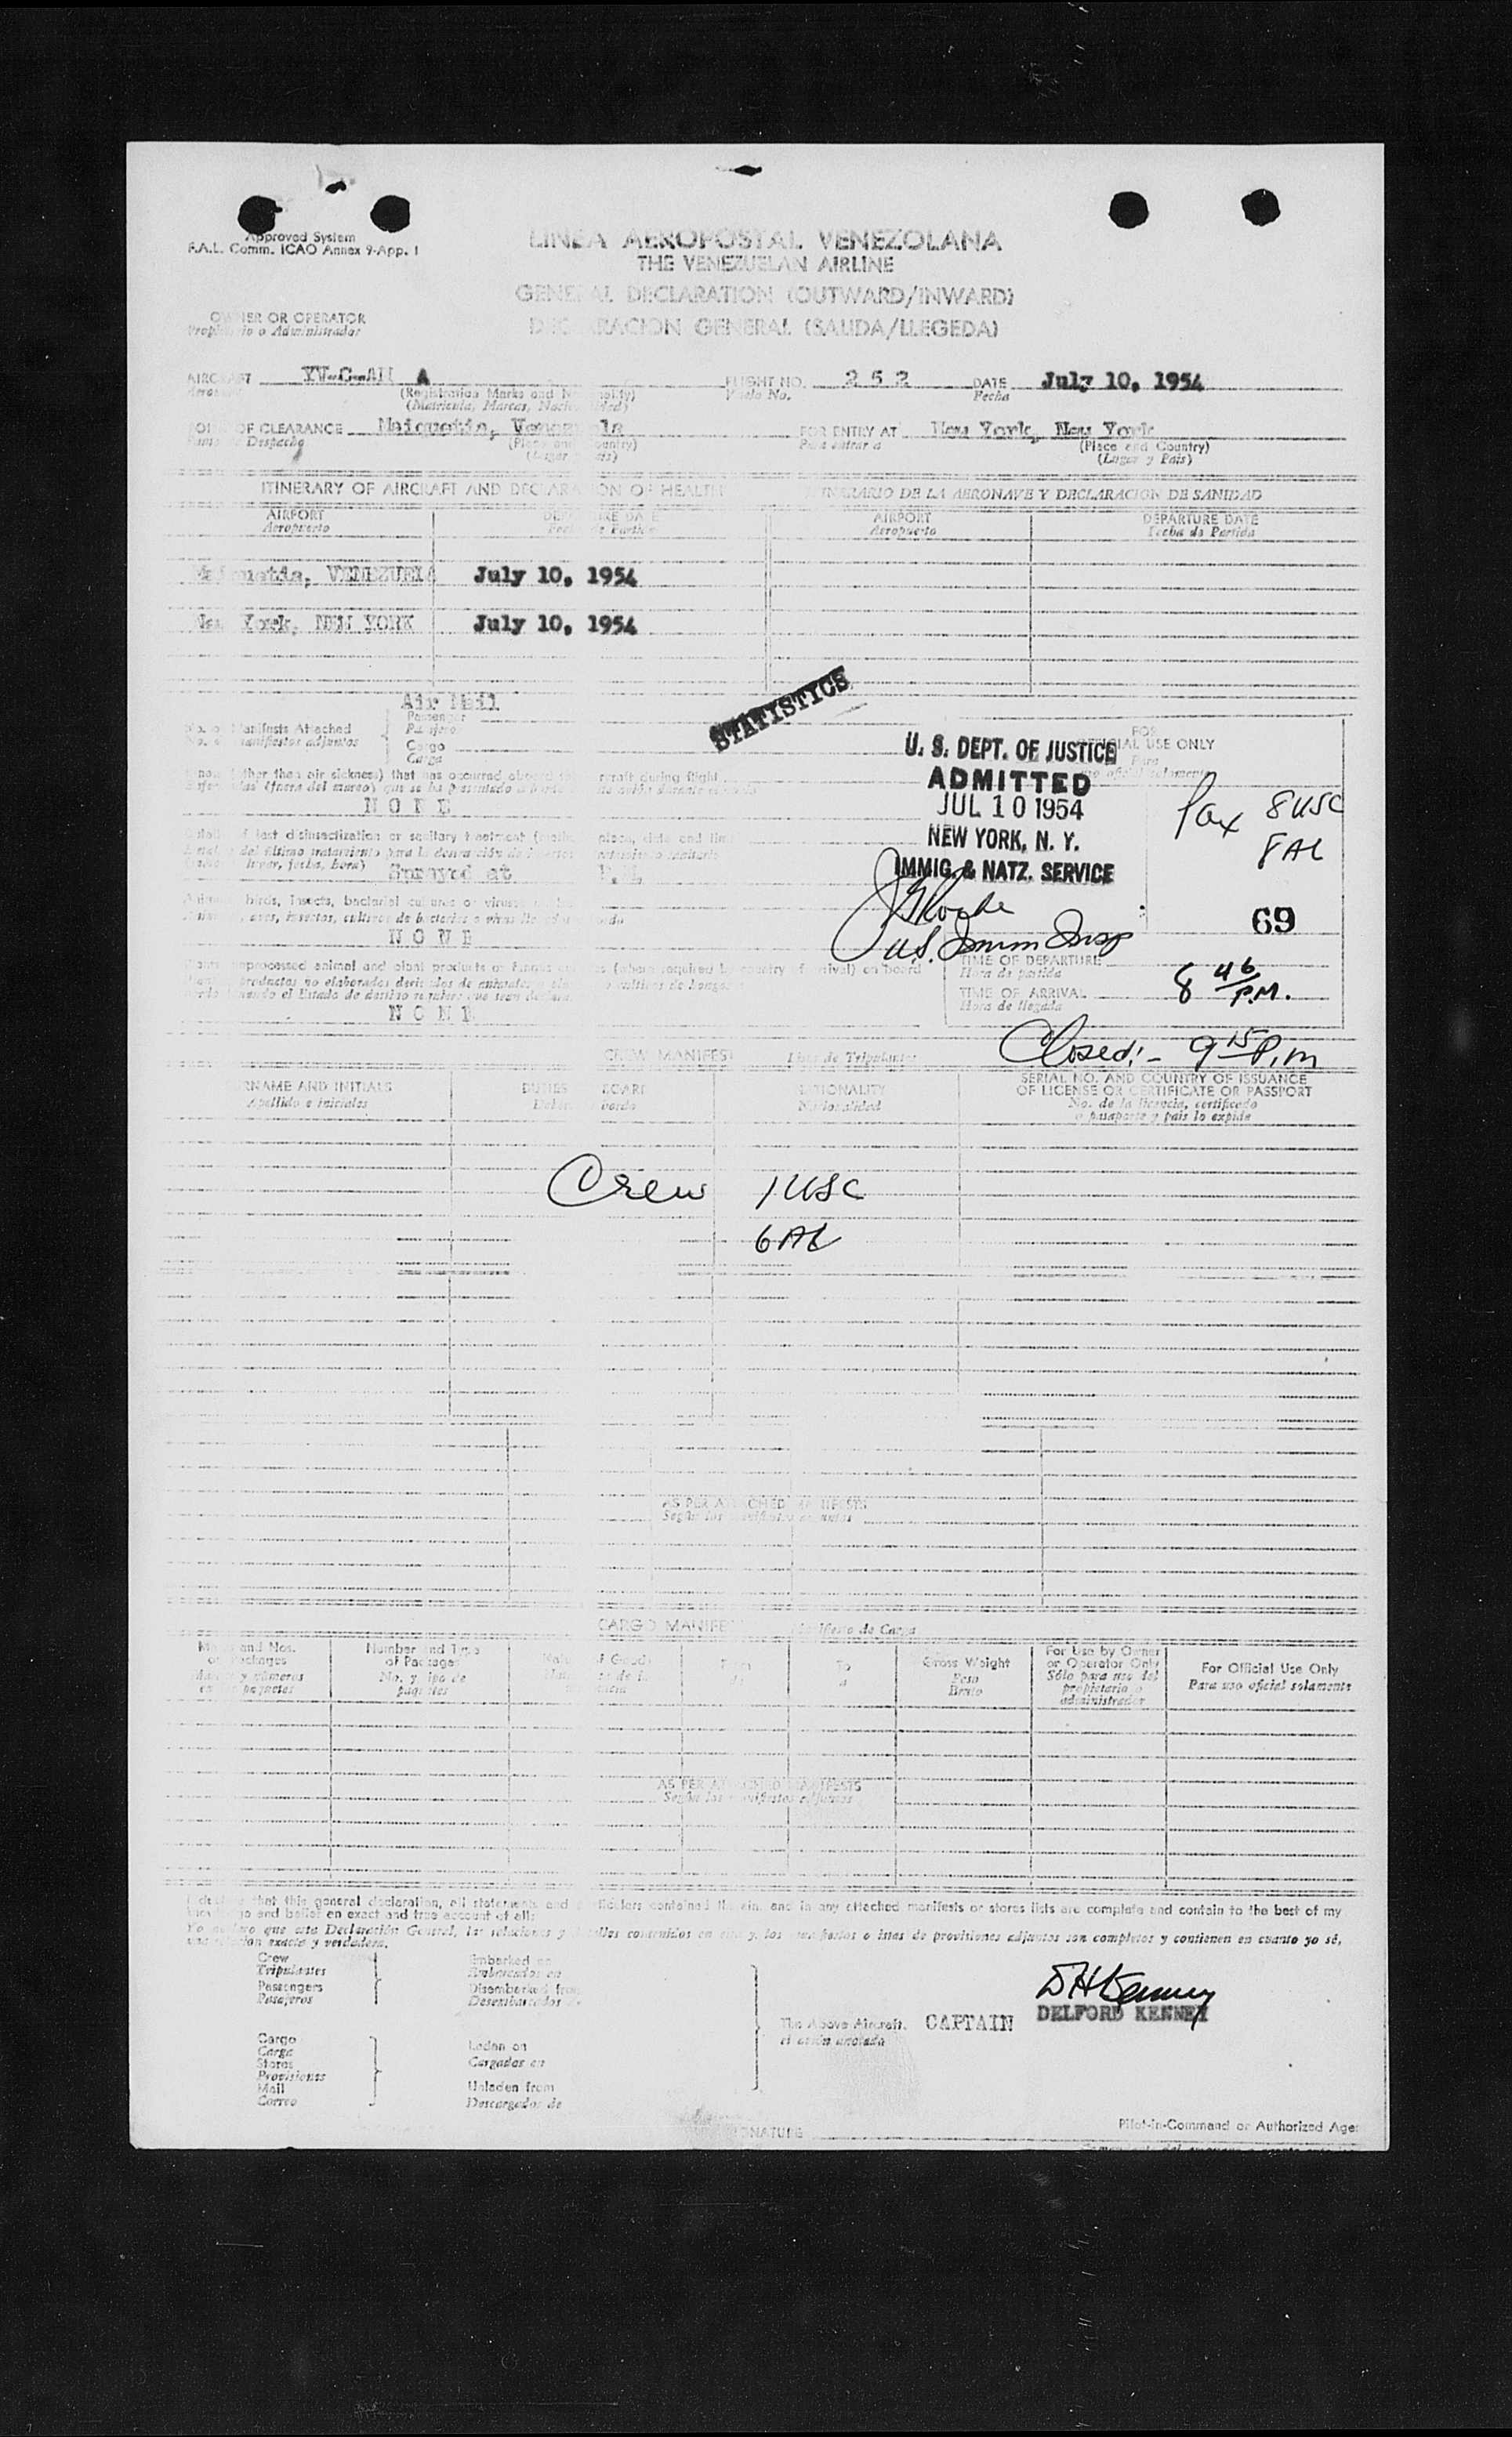 Approved System
F.A.L. Comm. ICAO Annex 9-App. I
LINEA AEROPOSTAL VENEZOLANA
THE VENEZUELAN AIRLINE
GENERAL DECLARATION (OUTWARD/INWARD)
DECLARACION GENERAL (SALIDA/LLEGEDA)
OWNER OR OPERATOR
Propietario o Administrador
AIRCRAFT YV-C-AM A FLIGHT NO. 252 DATE July 10, 1954
(Registration Marks and Nationality) Vuelo No. Fecha
(Matricula, Marcas, Nacionalidad)
POINT OF CLEARANCE Maiquetia, Venezuela FOR ENTRY AT New York, New York
Despacho (Place and Country) Para entrar a (Place and Country)
(Lugar y Pais)
ITINERARY OF AIRCRAFT AND DECLARATION OF HEALTH ITINERARIO DE LA AERONAVE Y DECLARACION DE SANIDAD
AIRPORT DEPARTURE DATE AIRPORT DEPARTURE DATE
Aeropuerto Fecha de Partida Aeropuerto Fecha de Partida
Maiquetia, VENEZUELA July 10, 1954
New York, NEW YORK July 10, 1954
STATISTICS
Air Mail
Passenger
No. of Manifests Attached Pasajero
No. de manifiestos adjuntos Cargo
Carga
FOR
OFFICIAL USE ONLY
Para
uso oficial solamente
U. S. DEPT. OF JUSTICE
ADMITTED
JUL 10 1954
NEW YORK, N. Y.
IMMIG. & NATZ. SERVICE
U.S. Immn Insp
Pax 8 USC
8 AL
69
(other than air sickness) that has occurred aboard the aircraft during flight
NONE
Details of last disinsectization or sanitary treatment (method, place, date and time
Sprayed at
birds, insects, bacterial cultures or viruses
NONE
NONE
TIME OF DEPARTURE
Hora de partida
TIME OF ARRIVAL 8 46 P.M.
Hora de llegada
Closed:- 9 15 P.m
CREW MANIFEST Lista de Tripulantes
SURNAME AND INITIALS DUTIES ABOARD NATIONALITY SERIAL NO. AND COUNTRY OF ISSUANCE
Apellido e iniciales Nacionalidad OF LICENSE OR CERTIFICATE OR PASSPORT
No. de la licencia, certificado
o pasaporte y pais lo expide
Crew 1 USC
6 AL
AS PER ATTACHED MANIFESTS
Según los manifiestos adjuntos
CARGO MANIFEST Manifiesto de Carga
Marks and Nos. Number and Type Nature of Goods From To Gross Weight For Use by Owner For Official Use Only
of Packages of Packages a Peso or Operator Only Para uso oficial solamente
No. y tipo de Bruto Sólo para uso del
paquetes propietario o
administrador
AS PER ATTACHED MANIFESTS
Según los manifiestos adjuntos
I declare that this general declaration, all statements and particulars contained therein, and in any attached manifests or stores lists are complete and contain to the best of my
knowledge and belief an exact and true account of all:
Yo declaro que esta Declaración General, las relaciones y detalles contenidos en esta y, los manifiestos o listas de provisiones adjuntos son completos y contienen en cuanto yo sé,
una relación exacta y verdadera.
Crew Embarked on
Tripulantes Embarcados en
Passengers Disembarked from
Pasajeros Desembarcados de
Cargo
Carga Laden on
Stores Cargados en
Provisiones
Mail Unladen from
Correo Descargados de
The Above Aircraft.
el avión anotado
CAPTAIN
D H Kenney
DELFORD KENNEY
SIGNATURE
Pilot-in-Command or Authorized Age